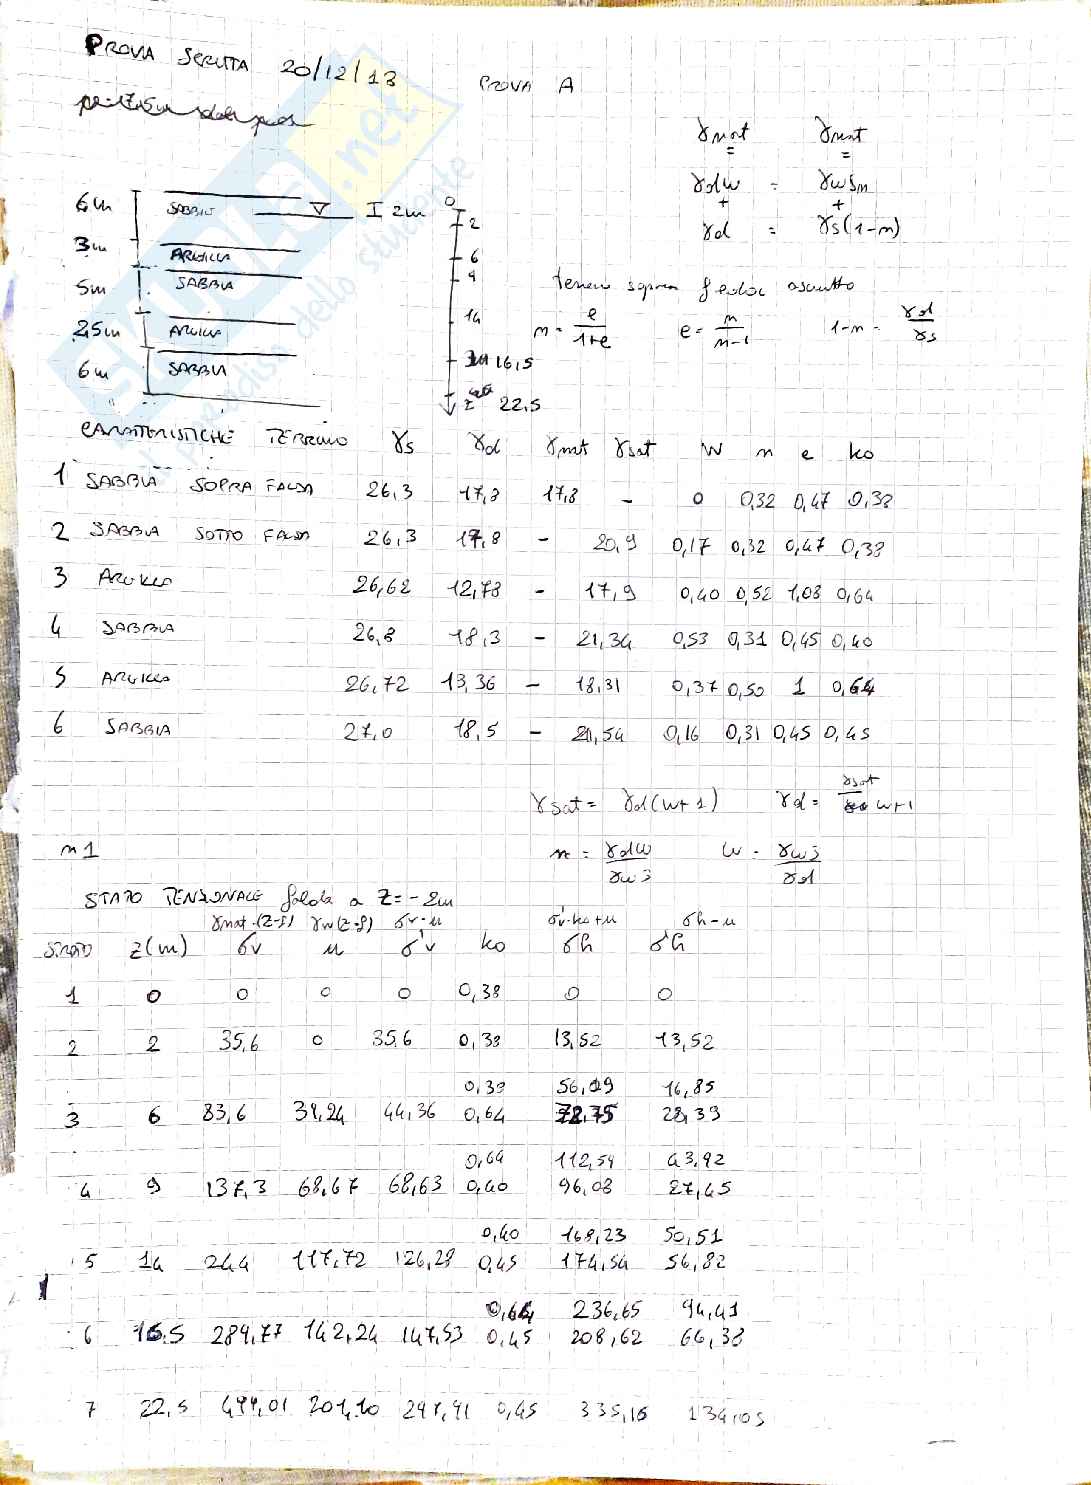 PROVA SCRITTA 20/12/13
PROVA A
γnat γsat
= =
γdw = γwSn
+ +
γd = γs(1-n)
6m SABBIA ▽ I 2m 0
2
3m ARGILLA 6
5m SABBIA 9
14
2,5m ARGILLA
16,5
6m SABBIA
z 22,5
terreno sopra falda asciutto
n = e/1+e e = n/n-1 1-n = γd/γs
CARATTERISTICHE TERRENO γs γd γnat γsat W n e ko
1 SABBIA SOPRA FALDA 26,3 17,8 17,8 - 0 0,32 0,47 0,38
2 SABBIA SOTTO FALDA 26,3 17,8 - 20,9 0,17 0,32 0,47 0,38
3 ARGILLA 26,62 12,78 - 17,9 0,40 0,52 1,08 0,64
4 SABBIA 26,8 18,3 - 21,34 0,53 0,31 0,45 0,40
5 ARGILLA 26,72 13,36 - 18,31 0,37 0,50 1 0,64
6 SABBIA 27,0 18,5 - 21,54 0,16 0,31 0,45 0,45
γsat = γd(w+1) γd = γsat/w+1
n 1
n = γdw/γw W = γw/γd
STATO TENSIONALE falda a Z=-2m
γnat·(z-f) γw(z-f) σv-u σ'v·ko+u σh-u
STRATO Z(m) σv u σ'v ko σh σ'h
1 0 0 0 0 0,38 0 0
2 2 35,6 0 35,6 0,38 13,52 13,52
0,38 56,09 16,85
3 6 83,6 39,24 44,36 0,64 28,39
0,64 112,59 43,92
4 9 137,3 68,67 68,63 0,40 96,08 27,45
0,40 168,23 50,51
5 14 244 117,72 126,28 0,45 174,54 56,82
0,64 236,65 94,41
6 16,5 289,77 142,24 147,53 0,45 208,62 66,38
7 22,5 499,01 201,10 297,91 0,45 335,15 134,05